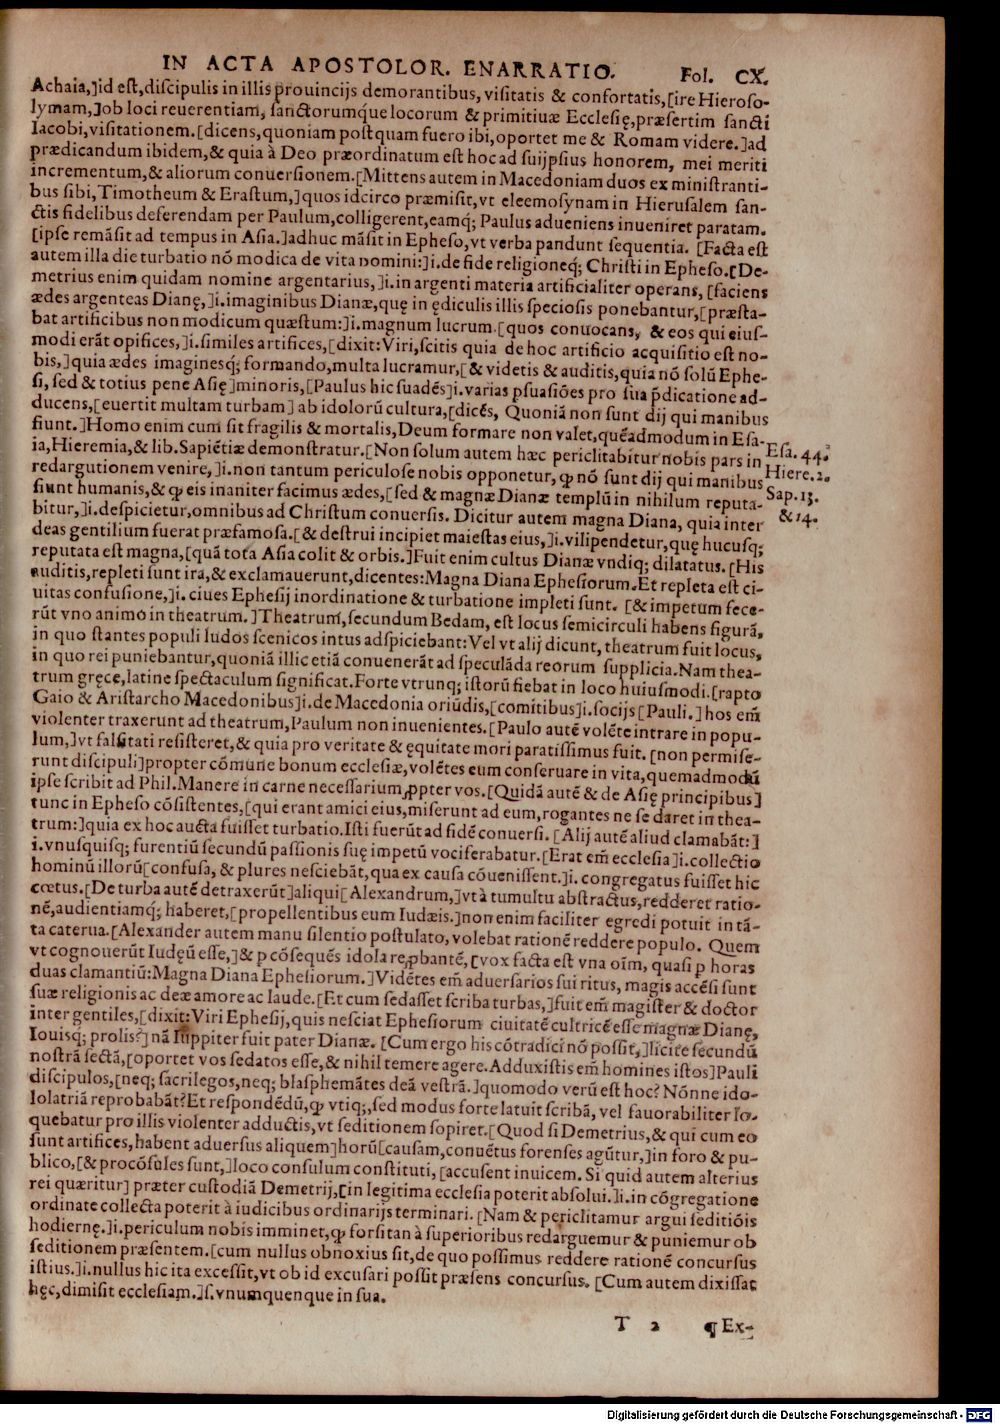 IN ACTA APOSTOLOR. ENARRATIO. Fol. CX.
Achaia,]id est,discipulis in illis prouincijs demorantibus, visitatis & confortatis,[ire Hieroso-
lymam,]ob loci reuerentiam, sanctorumq́ue locorum & primitiuæ Ecclesię,præsertim sancti
Iacobi,visitationem.[dicens,quoniam postquam fuero ibi,oportet me & Romam videre.]ad
prædicandum ibidem,& quia à Deo præordinatum est hoc ad suijpsius honorem, mei meriti
incrementum,& aliorum conuersionem.[Mittens autem in Macedoniam duos ex ministranti-
bus sibi,Timotheum & Erastum,]quos idcirco præmisit,vt eleemosynam in Hierusalem san-
ctis fidelibus deferendam per Paulum,colligerent,eamq́; Paulus adueniens inueniret paratam.
[ipse remãsit ad tempus in Asia.]adhuc mãsit in Epheso,vt verba pandunt sequentia. [Facta est
autem illa die turbatio nõ modica de vita nomini:]i.de fide religioneq́; Christi in Epheso.[De-
metrius enim quidam nomine argentarius,]i.in argenti materia artificialiter operans, [faciens
ædes argenteas Dianę,]i.imaginibus Dianæ,quę in ędiculis illis speciosis ponebantur,[præsta-
bat artificibus non modicum quæstum:]i.magnum lucrum.[quos conuocans, & eos qui eius-
modi erãt opifices,]i.similes artifices,[dixit:Viri,scitis quia de hoc artificio acquisitio est no-
bis,]quia ædes imaginesq́; formando,multa lucramur,[& videtis & auditis,quia nõ solũ Ephe-
si, sed & totius pene Asię]minoris,[Paulus hic suadẽs]i.varias p̱suasiões pro sua p̃dicatione ad-
ducens,[euertit multam turbam] ab idolorũ cultura,[dicẽs, Quoniã non sunt dij qui manibus
fiunt.]Homo enim cum sit fragilis & mortalis,Deum formare non valet,quẽadmodum in Esa-
ia,Hieremia,& lib.Sapiẽtiæ demonstratur.[Non solum autem hæc periclitabitur nobis pars in
redargutionem venire,]i.non tantum periculose nobis opponetur, ꝙ nõ sunt dij qui manibus
fiunt humanis,& ꝙ eis inaniter facimus ædes,[sed & magnæ Dianæ templũ in nihilum reputa-
bitur,]i.despicietur,omnibus ad Christum conuersis. Dicitur autem magna Diana, quia inter
deas gentilium fuerat præfamosa.[& destrui incipiet maiestas eius,]i.vilipendetur,quę hucusq;
reputata est magna,[quã tota Asia colit & orbis.]Fuit enim cultus Dianæ vndiq; dilatatus. [His
auditis,repleti sunt ira,& exclamauerunt,dicentes:Magna Diana Ephesiorum.Et repleta est ci-
uitas confusione,]i. ciues Ephesij inordinatione & turbatione impleti sunt. [& impetum fece-
rũt vno animo in theatrum.]Theatrum,secundum Bedam, est locus semicirculi habens figurã,
in quo stantes populi ludos scenicos intus adspiciebant:Vel vt alij dicunt, theatrum fuit locus,
in quo rei puniebantur,quoniã illic etiã conuenerãt ad speculãda reorum supplicia.Nam thea-
trum gręce,latine spectaculum significat.Forte vtrunq; istorũ fiebat in loco huiusmodi.[rapto
Gaio & Aristarcho Macedonibus]i.de Macedonia oriũdis,[comitibus]i.socijs [Pauli.] hos em̃
violenter traxerunt ad theatrum,Paulum non inuenientes.[Paulo autẽ volẽte intrare in popu-
lum,]vt falsitati resisteret,& quia pro veritate & ęquitate mori paratissimus fuit. [non permise-
runt discipuli]propter cõmune bonum ecclesiæ,volẽtes eum conseruare in vita,quemadmodũ
ipse scribit ad Phil.Manere in carne necessarium ꝓpter vos.[Quidã autẽ & de Asię principibus]
tunc in Epheso cõsistentes,[qui erant amici eius,miserunt ad eum,rogantes ne se daret in thea-
trum:]quia ex hoc aucta fuisset turbatio.Isti fuerũt ad fidẽ conuersi. [Alij autẽ aliud clamabãt:]
i.vnusquisq; furentiũ secundũ passionis suę impetũ vociferabatur.[Erat em̃ ecclesia]i.collectio
hominũ illorũ[confusa, & plures nesciebãt,qua ex causa cõuenissent.]i. congregatus fuisset hic
cœtus.[De turba autẽ detraxerũt]aliqui[ Alexandrum,]vt à tumultu abstractus,redderet ratio-
nẽ,audientiamq́; haberet,[propellentibus eum Iudæis.]non enim faciliter egredi potuit in tã-
ta caterua.[Alexander autem manu silentio postulato, volebat rationẽ reddere populo. Quem
vt cognouerũt Iudęũ esse,]& p̱ cõsequẽs idola reꝓbantẽ,[vox facta est vna oĩm, quasi p̱ horas
duas clamantiũ:Magna Diana Ephesiorum.]Vidẽtes em̃ aduersarios sui ritus, magis accẽsi sunt
suæ religionis ac deæ amore ac laude.[Et cum sedasset scriba turbas,]fuit em̃ magister & doctor
inter gentiles,[dixit:Viri Ephesij,quis nesciat Ephesiorum ciuitatẽ cultricẽ esse magnæ Dianę,
Iouisq; prolis?]nã Iuppiter fuit pater Dianæ. [Cum ergo his cõtradici nõ possit,]licite secundũ
nostrã sectã,[oportet vos sedatos esse,& nihil temere agere.Adduxistis em̃ homines istos]Pauli
discipulos,[neq; sacrilegos,neq; blasphemãtes deã vestrã.]quomodo verũ est hoc? Nõnne ido-
lolatriã reprobabãt?Et respondẽdũ,ꝙ vtiq;,sed modus forte latuit scribã, vel fauorabiliter lo-
quebatur pro illis violenter adductis,vt seditionem sopiret.[Quod si Demetrius,& qui cum eo
sunt artifices,habent aduersus aliquem]horũ[causam,conuẽtus forenses agũtur,]in foro & pu-
blico,[& procõsules sunt,]loco consulum constituti, [accusent inuicem. Si quid autem alterius
rei quæritur] præter custodiã Demetrij,[in legitima ecclesia poterit absolui.]i.in cõgregatione
ordinate collecta poterit à iudicibus ordinarijs terminari. [Nam & periclitamur argui seditiõis
hodiernę.]i.periculum nobis imminet,ꝙ forsitan à superioribus redarguemur & puniemur ob
seditionem præsentem.[cum nullus obnoxius sit,de quo possimus reddere rationẽ concursus
istius.]i.nullus hic ita excessit,vt ob id excusari possit præsens concursus. [Cum autem dixissat
hęc,dimisit ecclesiam.]s.vnumquenque in sua.
Esa. 44.
Hiere.2.
Sap.13.
&14.
T 2 ¶ Ex-
Digitalisierung gefördert durch die Deutsche Forschungsgemeinschaft - DFG